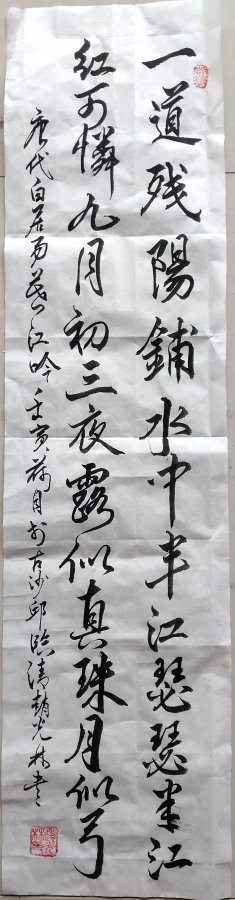 一道残陽鋪水中半江瑟瑟半江
紅可憐九月初三夜露似真珠月似弓
唐代白居易暮江吟壬寅荷月於古沙邱臨清趙光林書